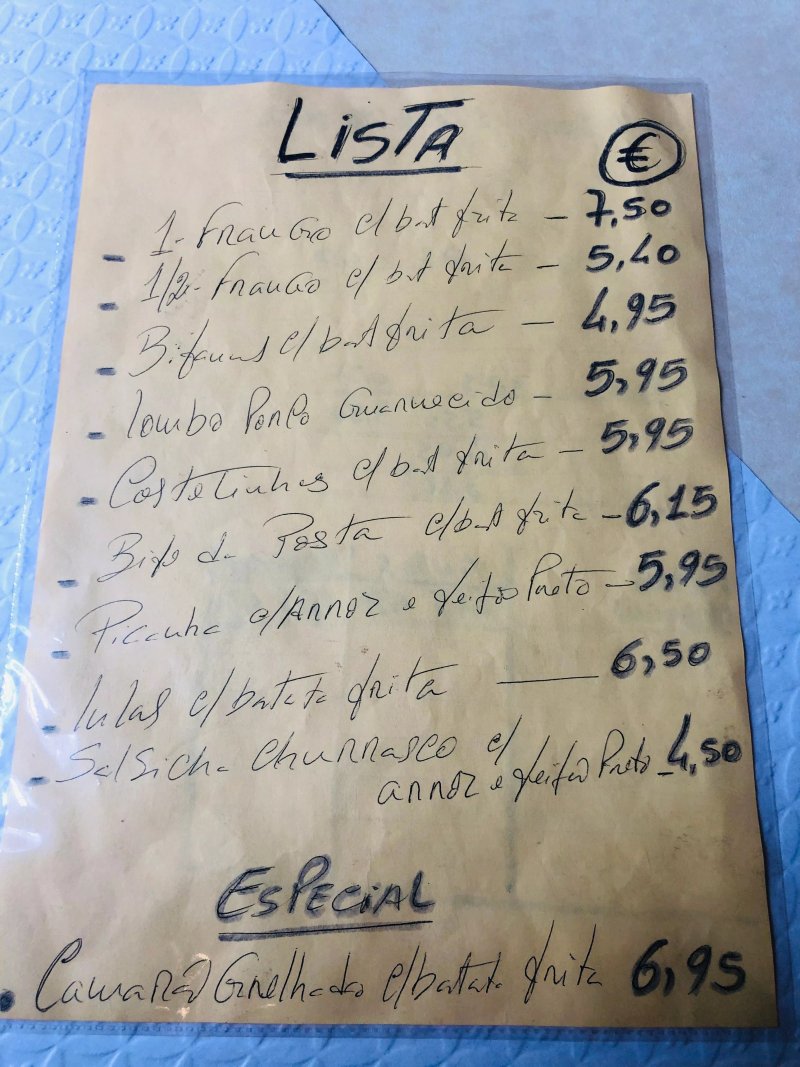 LISTA €
- 1- Frango c/ bat frita - 7,50
- 1/2- Frango c/ bat frita - 5,40
- Bifanas c/ bat frita - 4,95
- Lombo Porco Guarnecido - 5,95
- Costelinhas c/ bat frita - 5,95
- Bife da Posta c/ bat frita - 6,15
- Picanha c/ Arroz e feijão Preto - 5,95
- Lulas c/ batata frita - 6,50
- Salsicha Churrasco c/
arroz e feijão Preto - 4,50
ESPECIAL
• Camarão Grelhado c/ batata frita 6,95